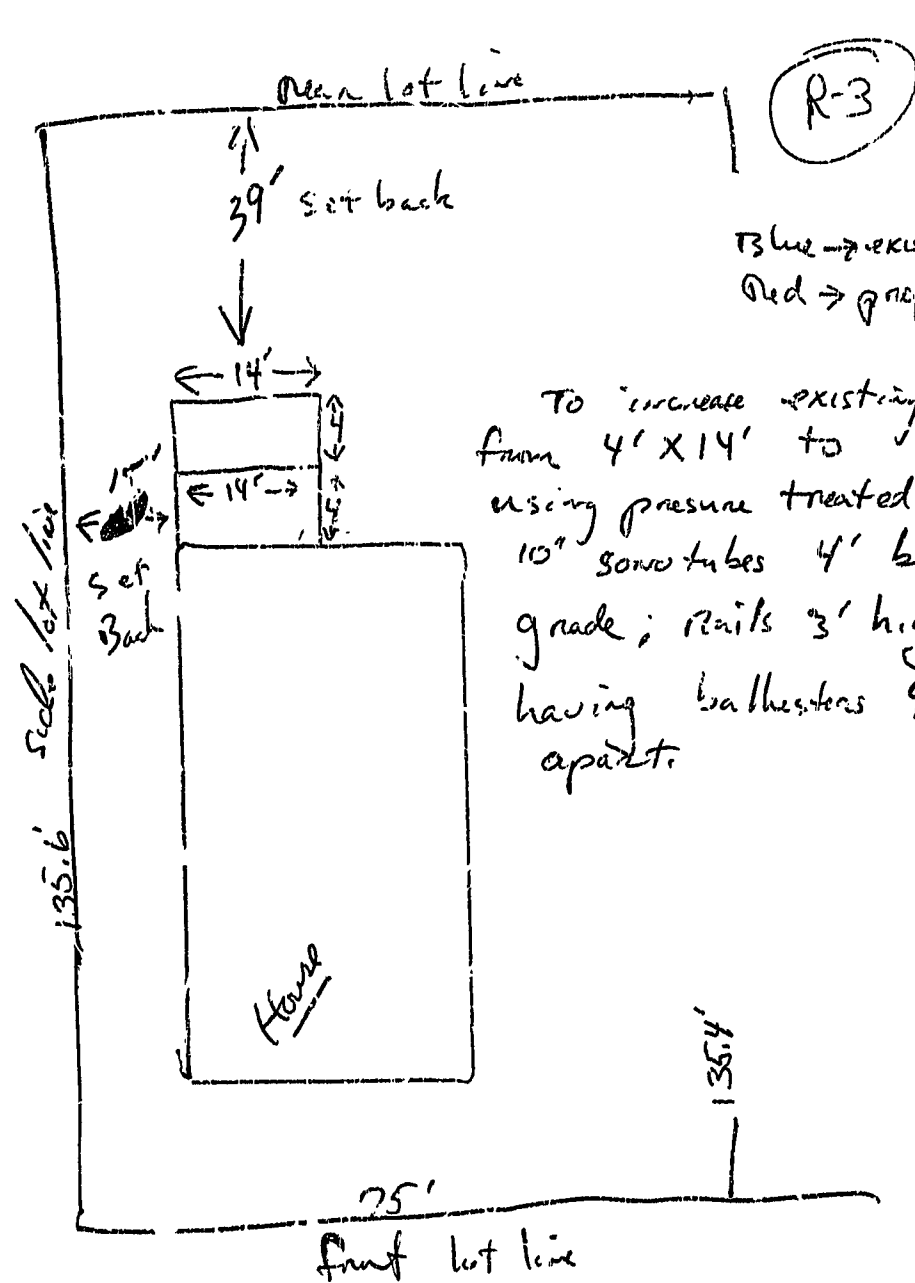 Rear lot line
R-3
39' set back
Blue → exis
Red → prop
14'
4'
14'
4'
15'
Set
Back
To increase existing
from 4' X 14' to
using presure treated
10" sonotubes 4' b
grade; Rails 3' hi
having ballusters
apart.
Side lot line
135.6'
House
135.4'
75'
front lot line